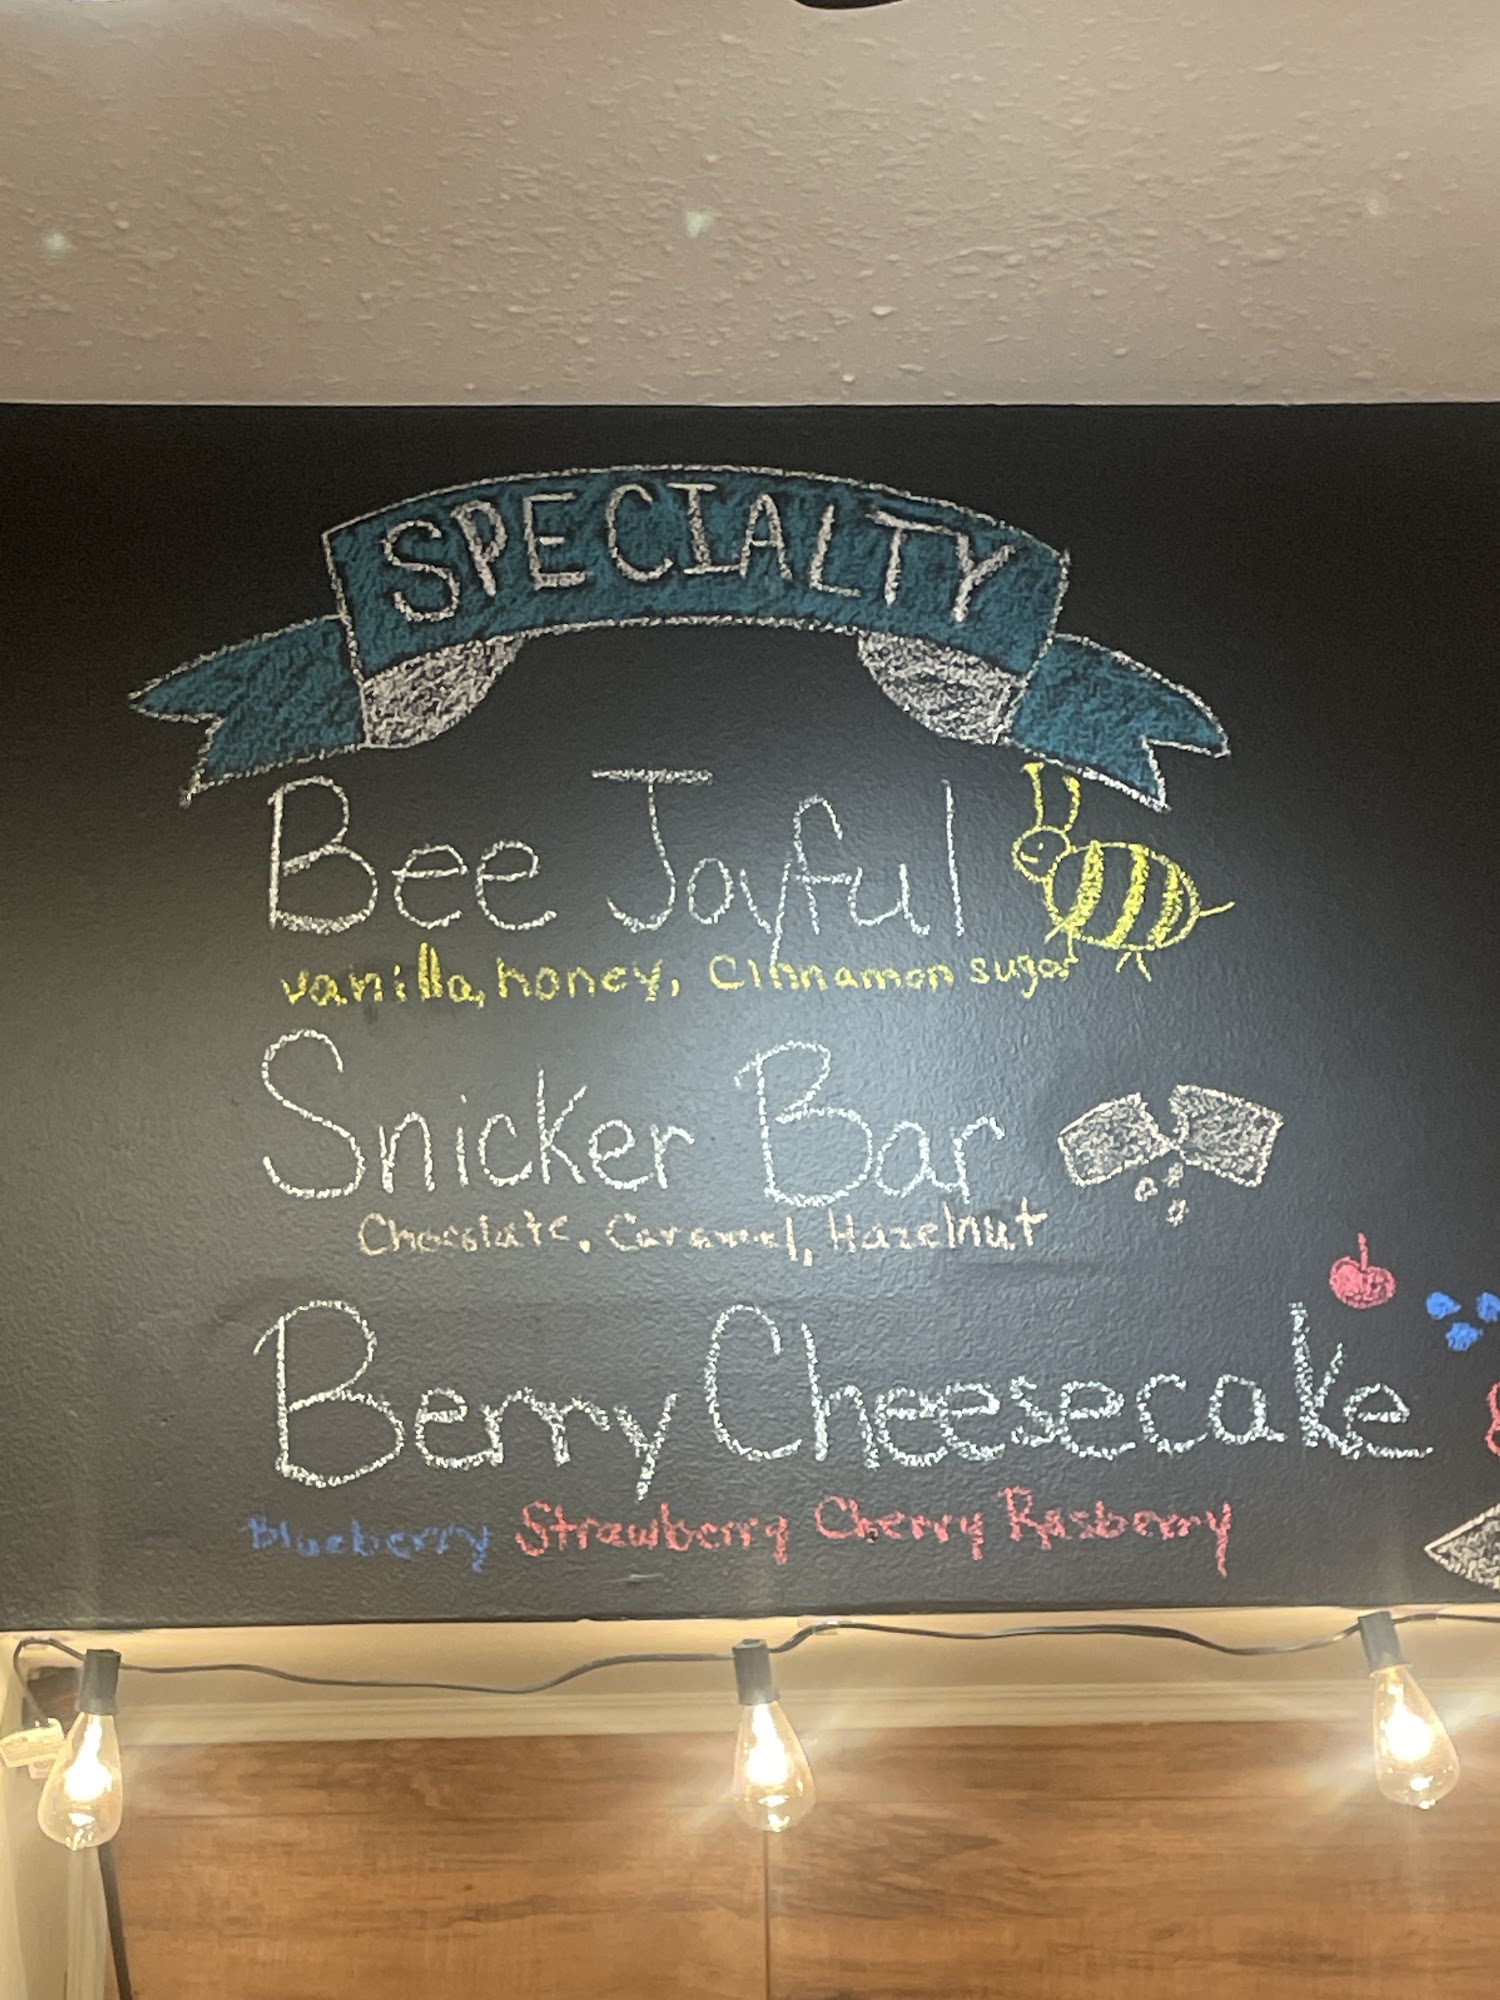 SPECIALTY
Bee Joyful
vanilla, honey, Cinnamon sugar
Snicker Bar
Chocolate, Caramel, Hazelnut
Berry Cheesecake
Blueberry Strawberry Cherry Rasberry